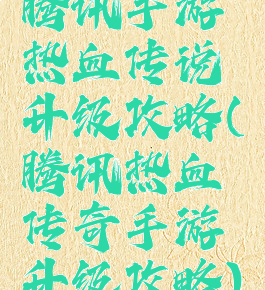 腾讯手游
热血传说
升级攻略(
腾讯热血
传奇手游
升级攻略)